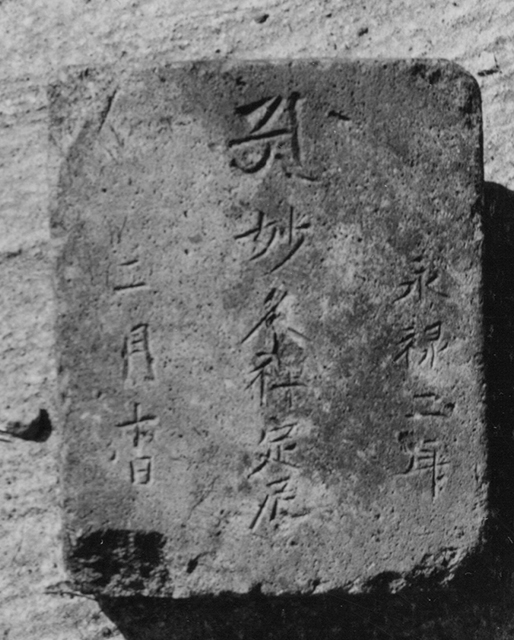 永禄年
妙名禅定尼
二月十日